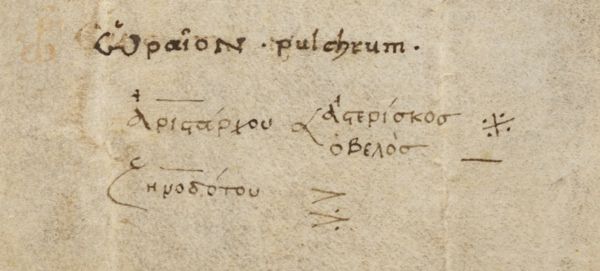 Ὡραῖον · pulchrum ·
Ἀριστάρχου ἀστερίσκος ※
ὀβελὸς —
Ἡροδότου >
⸖